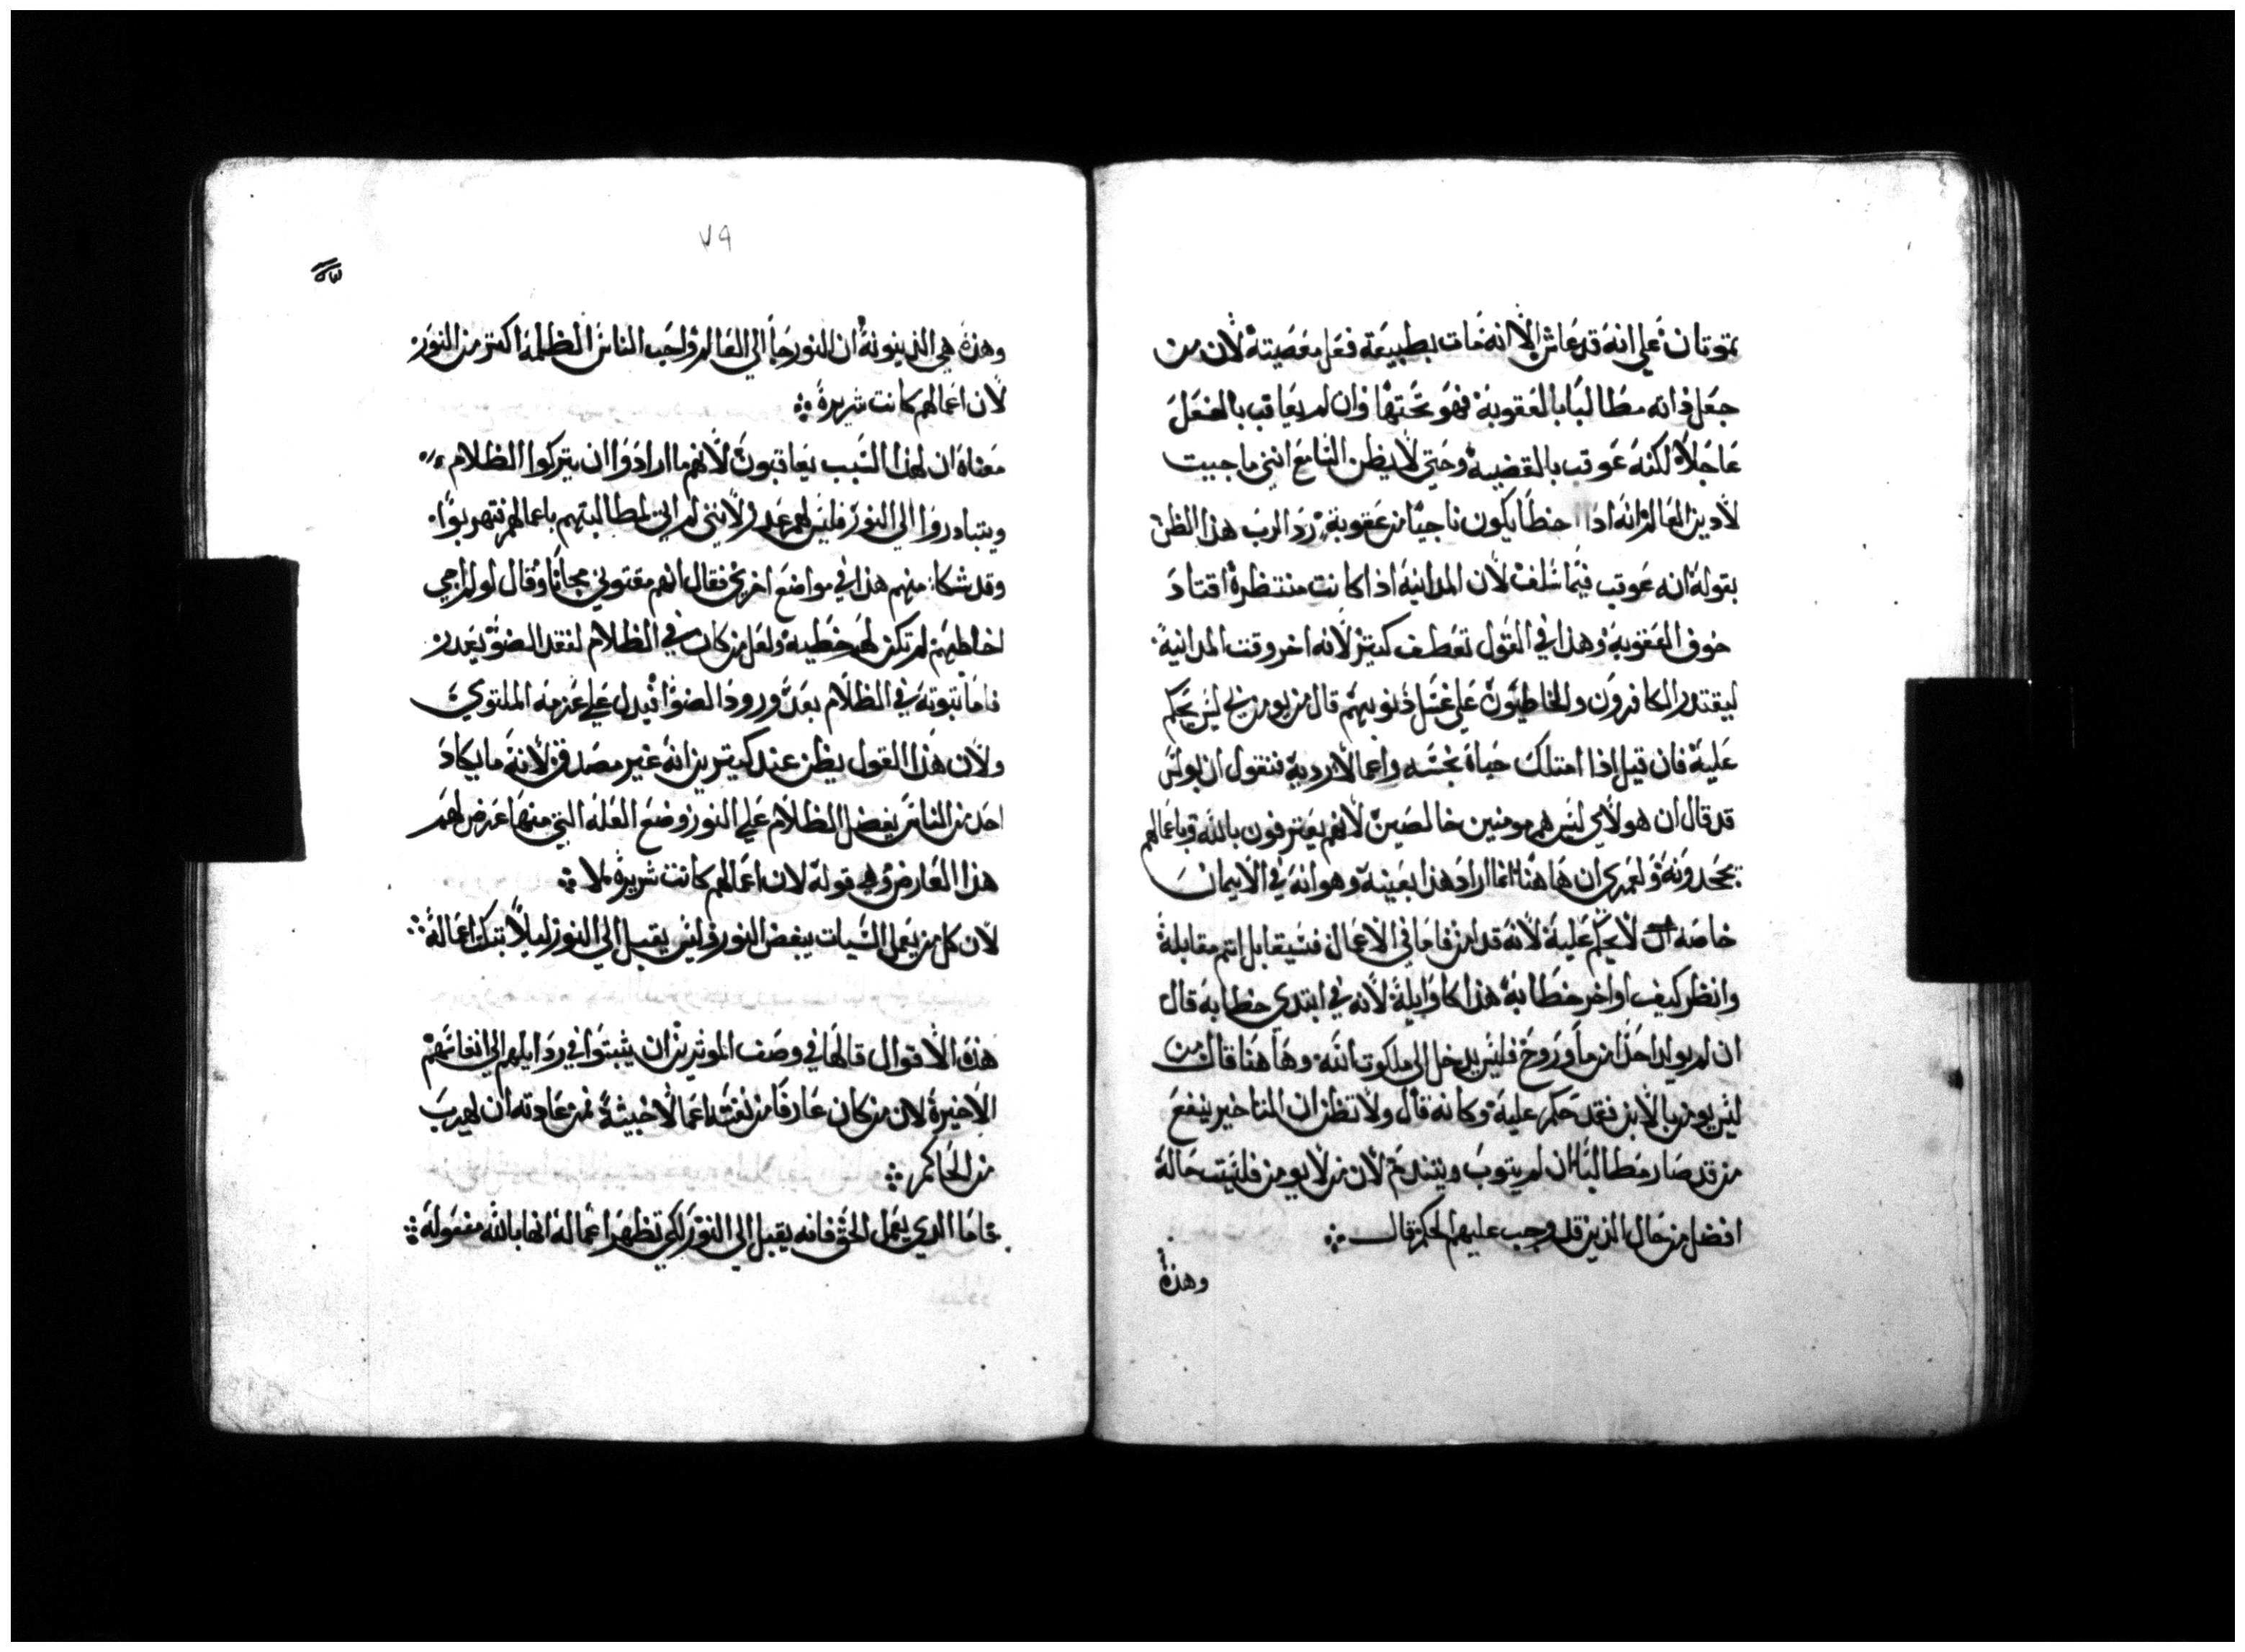 تموتان علي انه قد عاش الا انه مات بطبيعة فعل معصيته لان من
جعل ذاته مطالبا بالعقوبة فهو تحتها وان لم يعاقب بالفعل
عاجلا لكنه عوقب بالقضية وحتي لا يظن السامع انني ما جيت
لادين العالم انه اذا اخطا يكون ناجيا من عقوبة رد الرب هذا الظن
بقوله انه عوقب فيما سلف لان المداينة اذا كانت منتظرة اقتاد
خوف العقوبة وهذا في القول تعطف كثير لانه اخر وقت المداينة
ليقتدر الكافرون والخاطيون علي غسل ذنوبهم قال من يومن بي ليس يحكم
عليه فان قيل اذا امتلك حياة نجسه واعمالا ردية فنقول ان بولس
قد قال ان هولاي ليس هم مومنين خالصين لانهم يعترفون بالله وباعمالهم
يجحدونه ولعمري ان هاهنا انما اراد هذا بعينه وهو انه في الايمان
خاصه لا يحكم عليه لانه قد امن فاما في الاعمال فسيقابل اتم مقابلة
وانظر كيف اواخر خطابه هذا كاوايله لانه في ابتدي خطابه قال
ان لم يولد احدا من ما وروح فليس يدخل الي ملكوت الله وها هنا قال من
ليس يومن بالابن فقد حكم عليه وكانه قال ولا تظن ان التاخير ينفع
من قد صار مطالبا ان لم يتوب ويتندم لان من لا يومن فليست حاله
افضل من حال الذين قد وجب عليهم الحكم قال
وهذه
٧٩
وهذه هي الدينونة ان النور جا الي العالم واحب الناس الظلمة اكتر من النور
لان اعمالهم كانت شريرة
معناه ان لهذا السبب يعاقبون لانهم ما ارادوا ان يتركوا الظلام
ويتبادروا الي النور فليس لهم عدر لانني لم اتي لمطالبتهم باعمالهم فتهربوا
وقد شكا منهم هذا في مواضع اخري فقال انهم مقتوني مجانا وقال لو لم اجي
اخاطبهم لم تكن لهم خطية ولعل من كان في الظلام لفقد الضو يعدر
فاما تبوته في الظلام بعد ورود الضو فيدل علي عزمه الملتوي
ولان هذا القول يظن عند كتيرين انه غير مصدق لانه ما يكاد
احد من الناس يفضل الظلام علي النور وضع العله التي منها عرض لهم
هذا العارض وهي قوله لان اعمالهم كانت شريرة
لان كل من يعمل السيات يبغض النور وليس يقبل الي النور ليلا تبكت اعماله
هذه الاقوال قالها في وصف الموثرين ان يثبتوا في ردايلهم الي انفاسهم
الاخيرة لان من كان عارفا من نفسه اعمالا خبيثة فمن عادته ان يهرب
من الحاكم
فاما الدي يعمل الحق فانه يقبل الي النور لكي تظهر اعماله انها بالله مفعولة